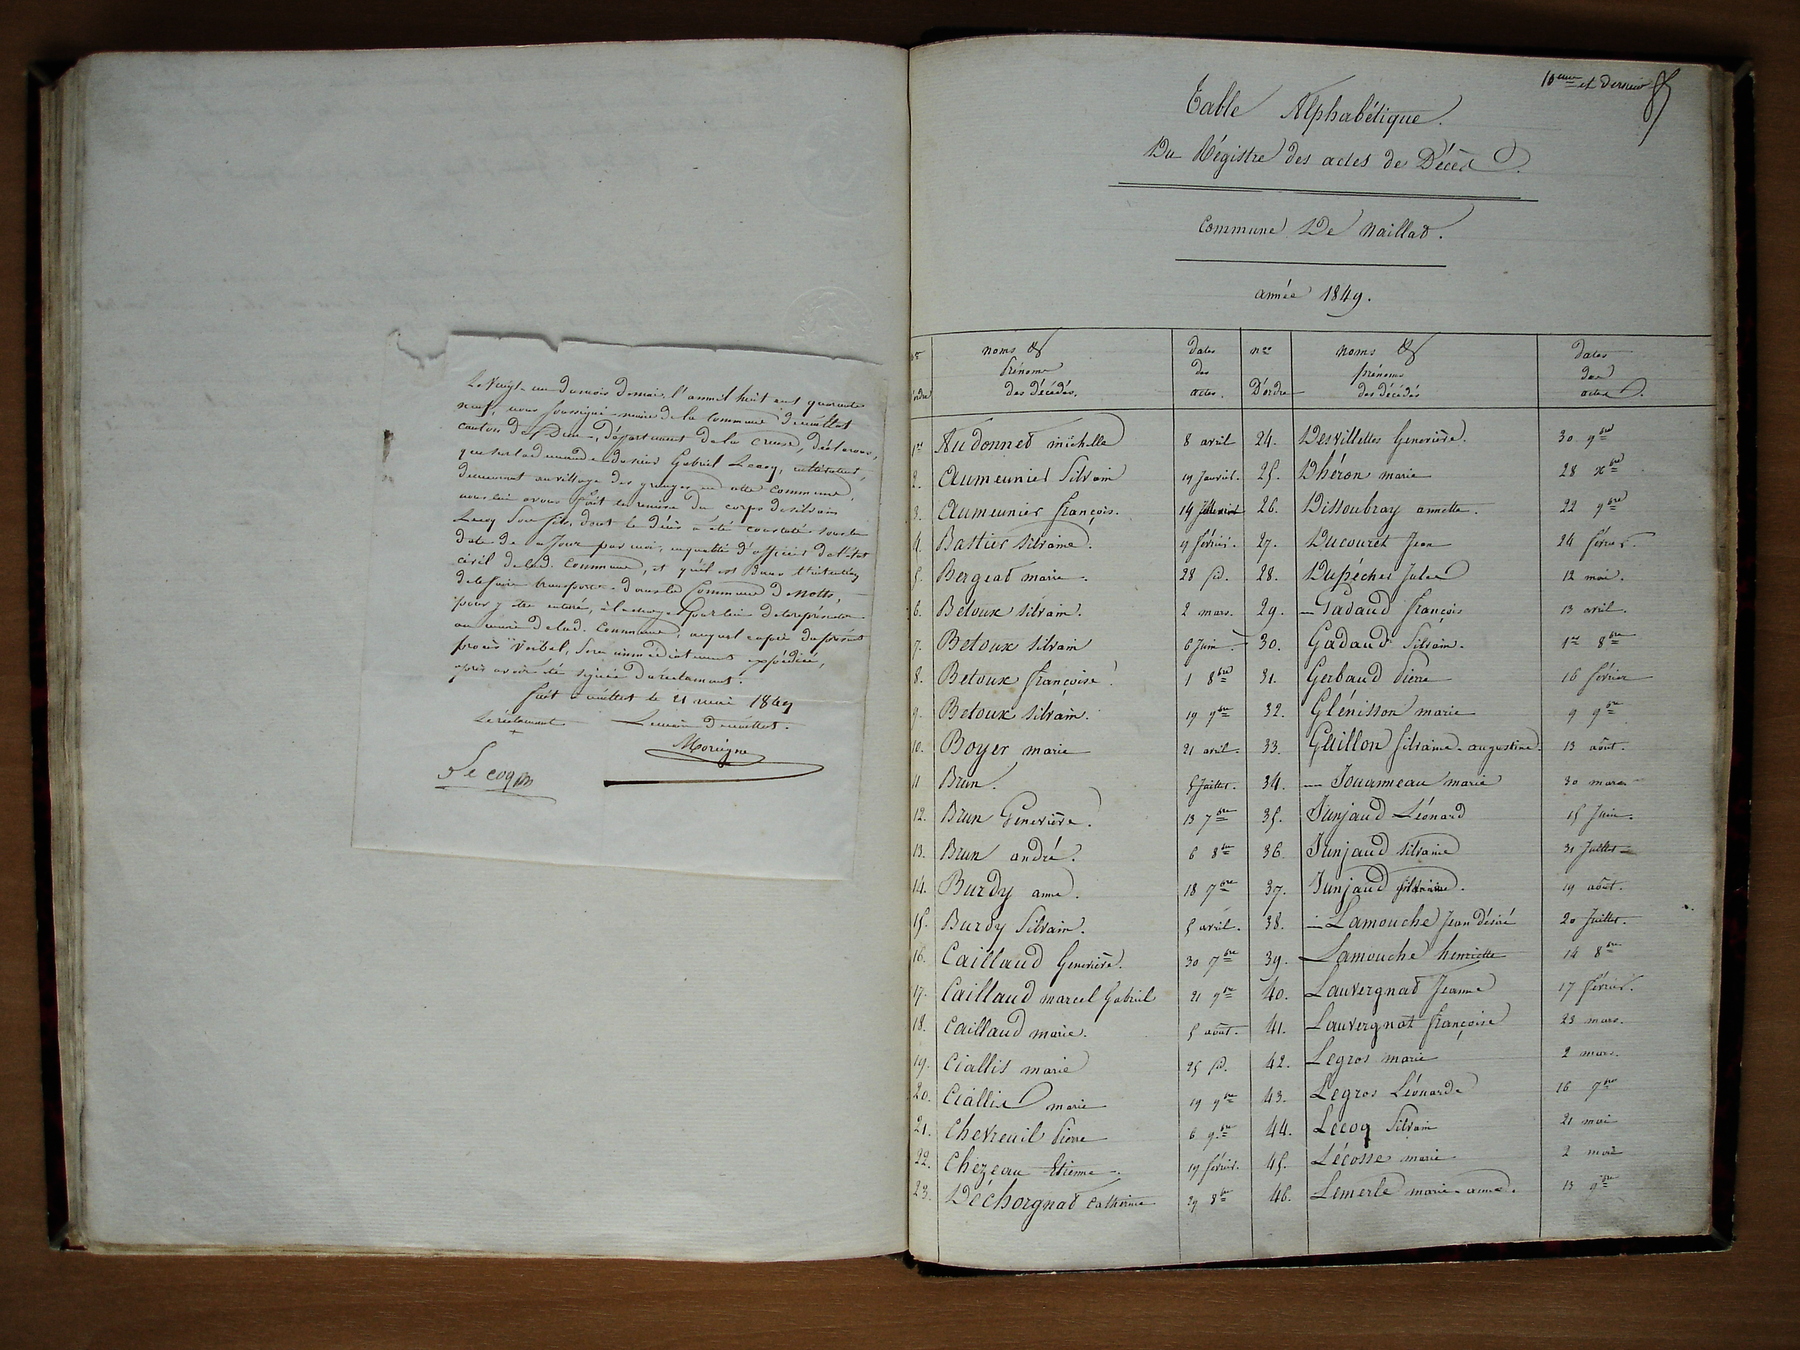 Le vingt un du mois de mai, l'an mil huit cent quarante
neuf, nous soussigné maire de la commune de
canton de Dun, département de la creuse, déclarons,
que sur la demande du sieur Gabriel Lecoq, cultivateur
demeurant au village des granges en cette commune,
nous lui avons fait la remise du corps de silvain
Lecoq son fils, dont le décès a été constaté sous la
date de ce jour par moi, en qualité d'officier de l'état
civil de lad. commune, et qu'il est dans l'intention
de le faire transporter dans la commune de
pour y être enterré, à la charge par lui de le représenter
au maire de lad. commune, auquel copie du présent
procès verbal, sera immédiatement expédiée,
après avoir été signée du réclamant.
fait à le 21 mai 1849
Le réclamant Le maire de
Lecoq
Table Alphabétique.
10eme et Dernier
Du Régistre des actes de Décès.
Commune De naillat.
année 1849.
noms & prénoms des décédés, dates des actes. nos D'ordre noms & prénoms des décédés dates des actes.
1er Audonnet michelle 8 avril 24. Desvillettes Geneviève. 30 9bre
2. Aumeunier Silvain 19 Janvier. 25. Dhéron marie 28 xbre
3. Aumeunier françois. 14 26. Dissoubray annette. 22 9bre
4. Bastier silvaine. 9 février. 27. Ducouret Jean 24 février.
5. Bergeat marie. 28 id. 28. Dupéchés Jules 12 mai.
6. Betoux silvain. 2 mars. 29. Gadaud françois 13 avril.
7. Betoux silvain 6 Juin 30. Gadaud Silvain. 1er 8bre
8. Betoux françoise. 1 8bre 31. Gerbaud Pierre 16 février
9. Betoux silvain. 19 9bre 32. Glénisson marie 9 9bre
10. Boyer marie 21 avril. 33. Guillon silvaine-augustine. 13 août.
11 Brun. 5 Juillet. 34. Jouanneau marie 30 mars
12. Brun Geneviève. 13 7bre 35. Junjaud Léonard 15 Juin.
13. Brun andré. 6 8bre 36. Junjaud silvaine 31 Juillet
14. Burdy anne. 18 7bre 37. Junjaud 19 août.
15. Burdy Silvain. 5 avril. 38. Lamouche Jean Désiré 20 Juillet.
16. Caillaud Geneviève. 30 7bre 39. Lamouche henriette 14 8bre
17. Caillaud marcel Gabriel 21 9bre 40. Lauvergnat Jeanne 17 février.
18. Caillaud marie. 5 août. 41. Lauvergnat françoise 23 mars.
19. Ciallis marie 25 id. 42. Legros marie 2 mars.
20. Ciallis marie 19 9bre 43. Legros Léonarde 16 7bre
21. Chevreuil Pierre 6 9bre 44. Lecoq Silvain 21 mai
22. Chezeau Etienne. 19 février. 45. Lécosse marie 2 mai
23. Déchorgnat catherine 29 8bre 46. Lemerle marie-anne. 13 9bre